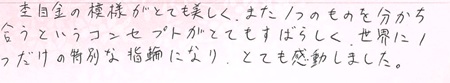 杢目金の模様がとても美しく、また1つのものを分かち
合うというコンセプトがとてもすばらしく、世界に1
つだけの特別な指輪になり、とても感動しました。